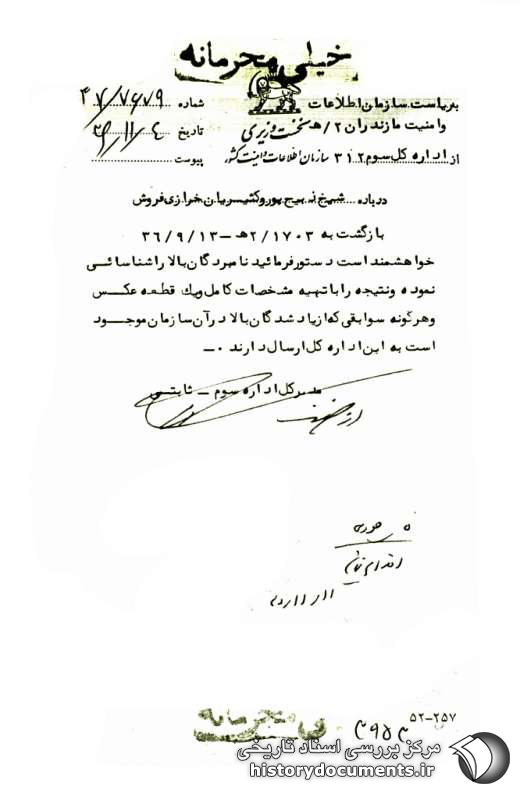 خیلی محرمانه
بریاست سازمان اطلاعات شماره ۳۷/۷۶۷۹
وامنیت مازندران ۲/هـ نخست وزیری تاریخ
از اداره کل سوم ۳۱۲ سازمان اطلاعات و امنیت کشور پیوست
درباره شیخ ذبیح پور و کشیریان خرازی فروش
بازگشت به ۲/۱۷۰۳هـ – ۳۶/۹/۱۳
خواهشمند است دستور فرمائید نامبردگان بالا را شناسائی
نموده و نتیجه را با تهیه مشخصات کامل ویک قطعه عکس
وهرگونه سوابقی که از یاد شدگان بالا در آن سازمان موجود
است به این اداره کل ارسال دارند ۰ــ
مدیر کل اداره سوم ــ ثابتی
از طرف
۵۲-۲۵۷
محرمانه
مرکز بررسی اسناد تاریخی
historydocuments.ir